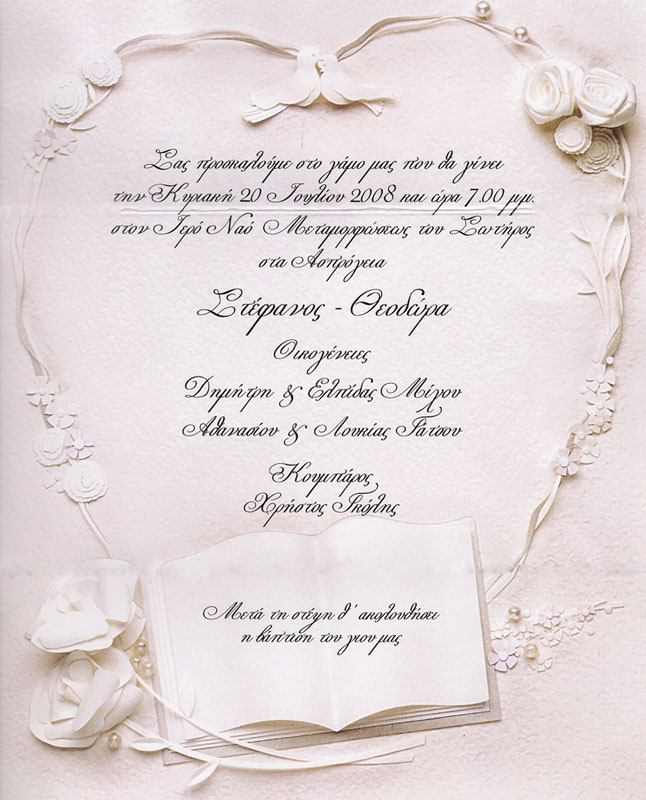 Σας προσκαλούμε στο γάμο μας που θα γίνει
την Κυριακή 20 Ιουλίου 2008 και ώρα 7.00 μμ.
στον Ιερό Ναό Μεταμορφώσεως του Σωτήρος
στα Ασπρόγεια
Στέφανος - Θεοδώρα
Οικογένειες
Δημήτρη & Ελπίδας Μίχου
Αθανασίου & Λουκίας Γάτσου
Κουμπάρος
Χρήστος Γκόλης
Μετά τη στέψη θ' ακολουθήσει
η βάπτιση του γιου μας